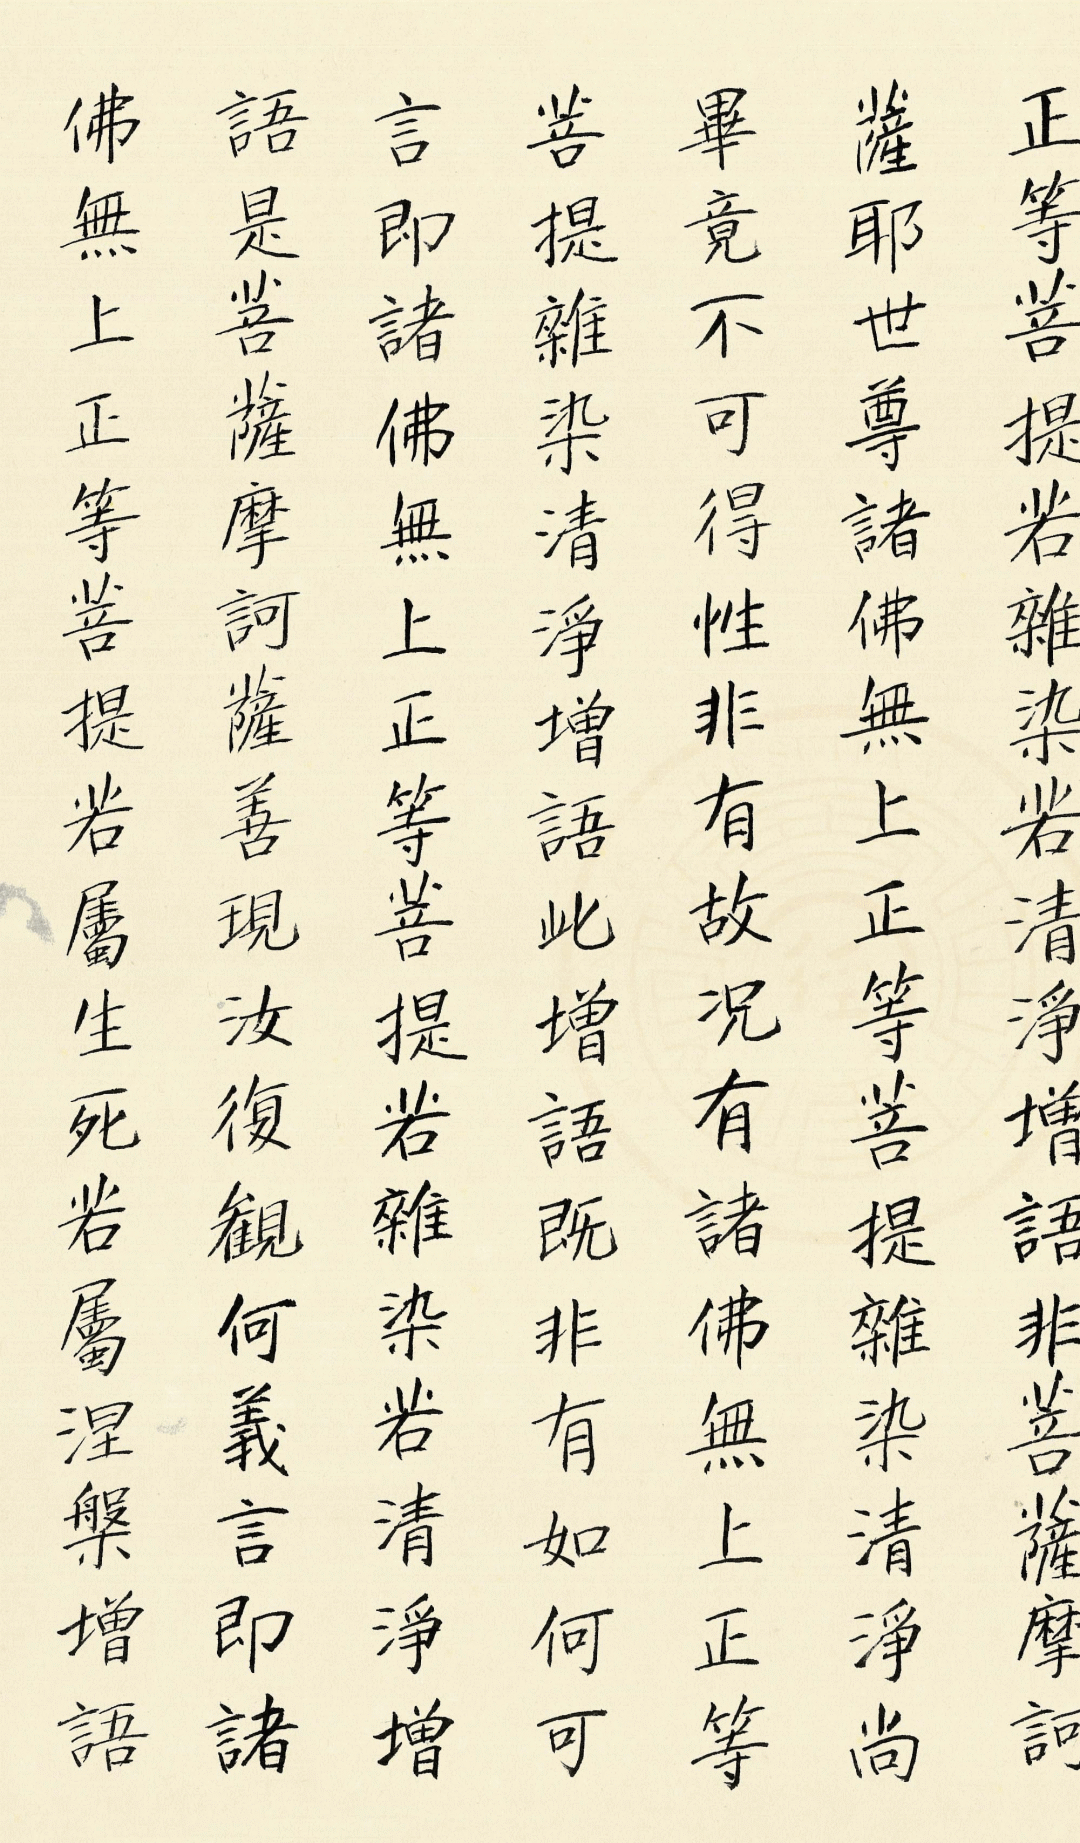 正等菩提若雜染若清淨增語非菩薩摩訶
薩耶世尊諸佛無上正等菩提雜染清淨尚
畢竟不可得性非有故况有諸佛無上正等
菩提雜染清淨增語此增語既非有如何可
言即諸佛無上正等菩提若雜染若清淨增
語是菩薩摩訶薩善現汝復観何義言即諸
佛無上正等菩提若屬生死若屬涅槃增語